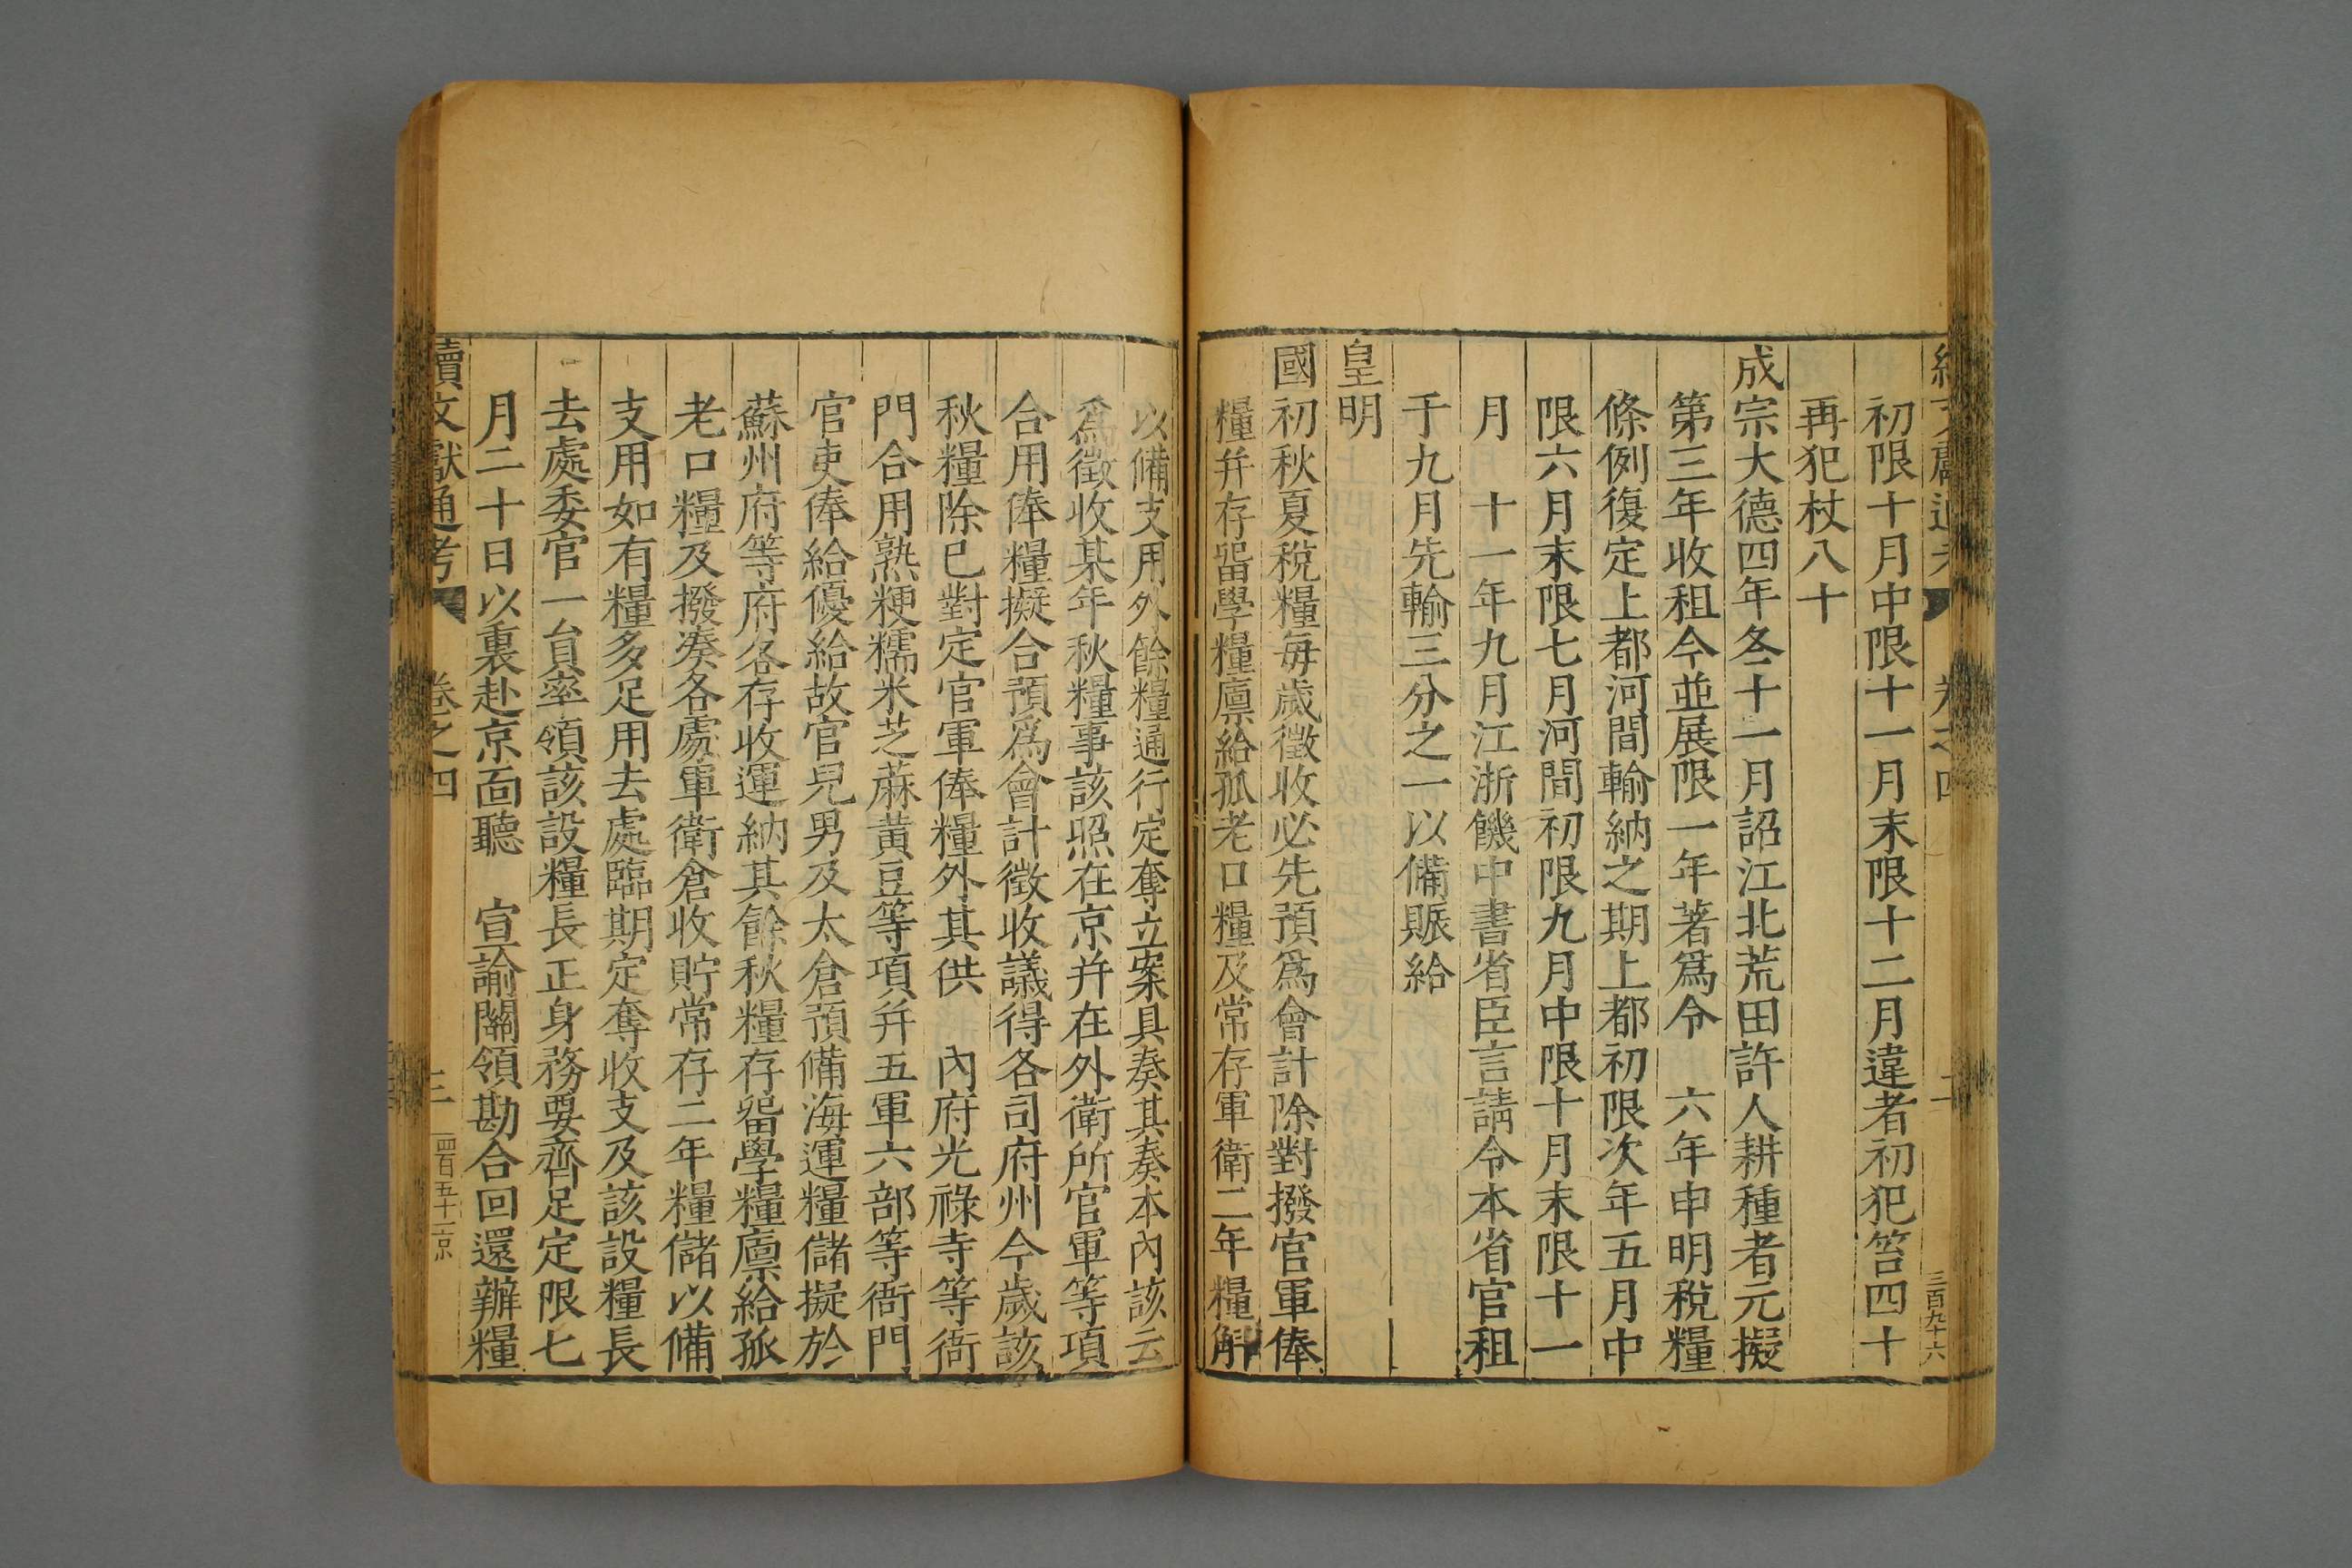 初限十月中限十一月末限十二月違者初犯笞四十
再犯杖八十
成宗大德四年冬十一月詔江北荒田許人耕種者元擬
第三年收租今並展限一年著爲令　六年申明稅糧
條例復定上都河間輸納之期上都初限次年五月中
限六月末限七月河間初限九月中限十月末限十一
月　十一年九月江浙饑中書省臣言請令本省官租
于九月先輸三分之一以備賑給
皇明
國初秋夏稅糧每歲徵收必先預爲會計除對撥官軍俸
糧并存畱學糧廪給孤老口糧及常存軍衛二年糧觧
以備支用外餘糧通行定奪立案具奏其奏本內該云
爲徵收某年秋糧事該照在京并在外衛所官軍等項
合用俸糧擬合預爲會計徵收議得各司府州今歲該
秋糧除已對定官軍俸糧外其供　內府光祿寺等衙
門合用熟粳糯米芝蔴黄豆等項并五軍六部等衙門
官吏俸給優給故官兒男及太倉預備海運糧儲擬於
蘇州府等府各存收運納其餘秋糧存畱學糧廪給孤
老口糧及撥湊各處軍衛倉收貯常存二年糧儲以備
支用如有糧多足用去處臨期定奪收支及該設糧長
去處委官一員率領該設糧長正身務要齊足定限七
月二十日以裏赴京面聽　宣諭關領勘合回還辦糧
續文獻通考　卷之四　三　四百五十二京